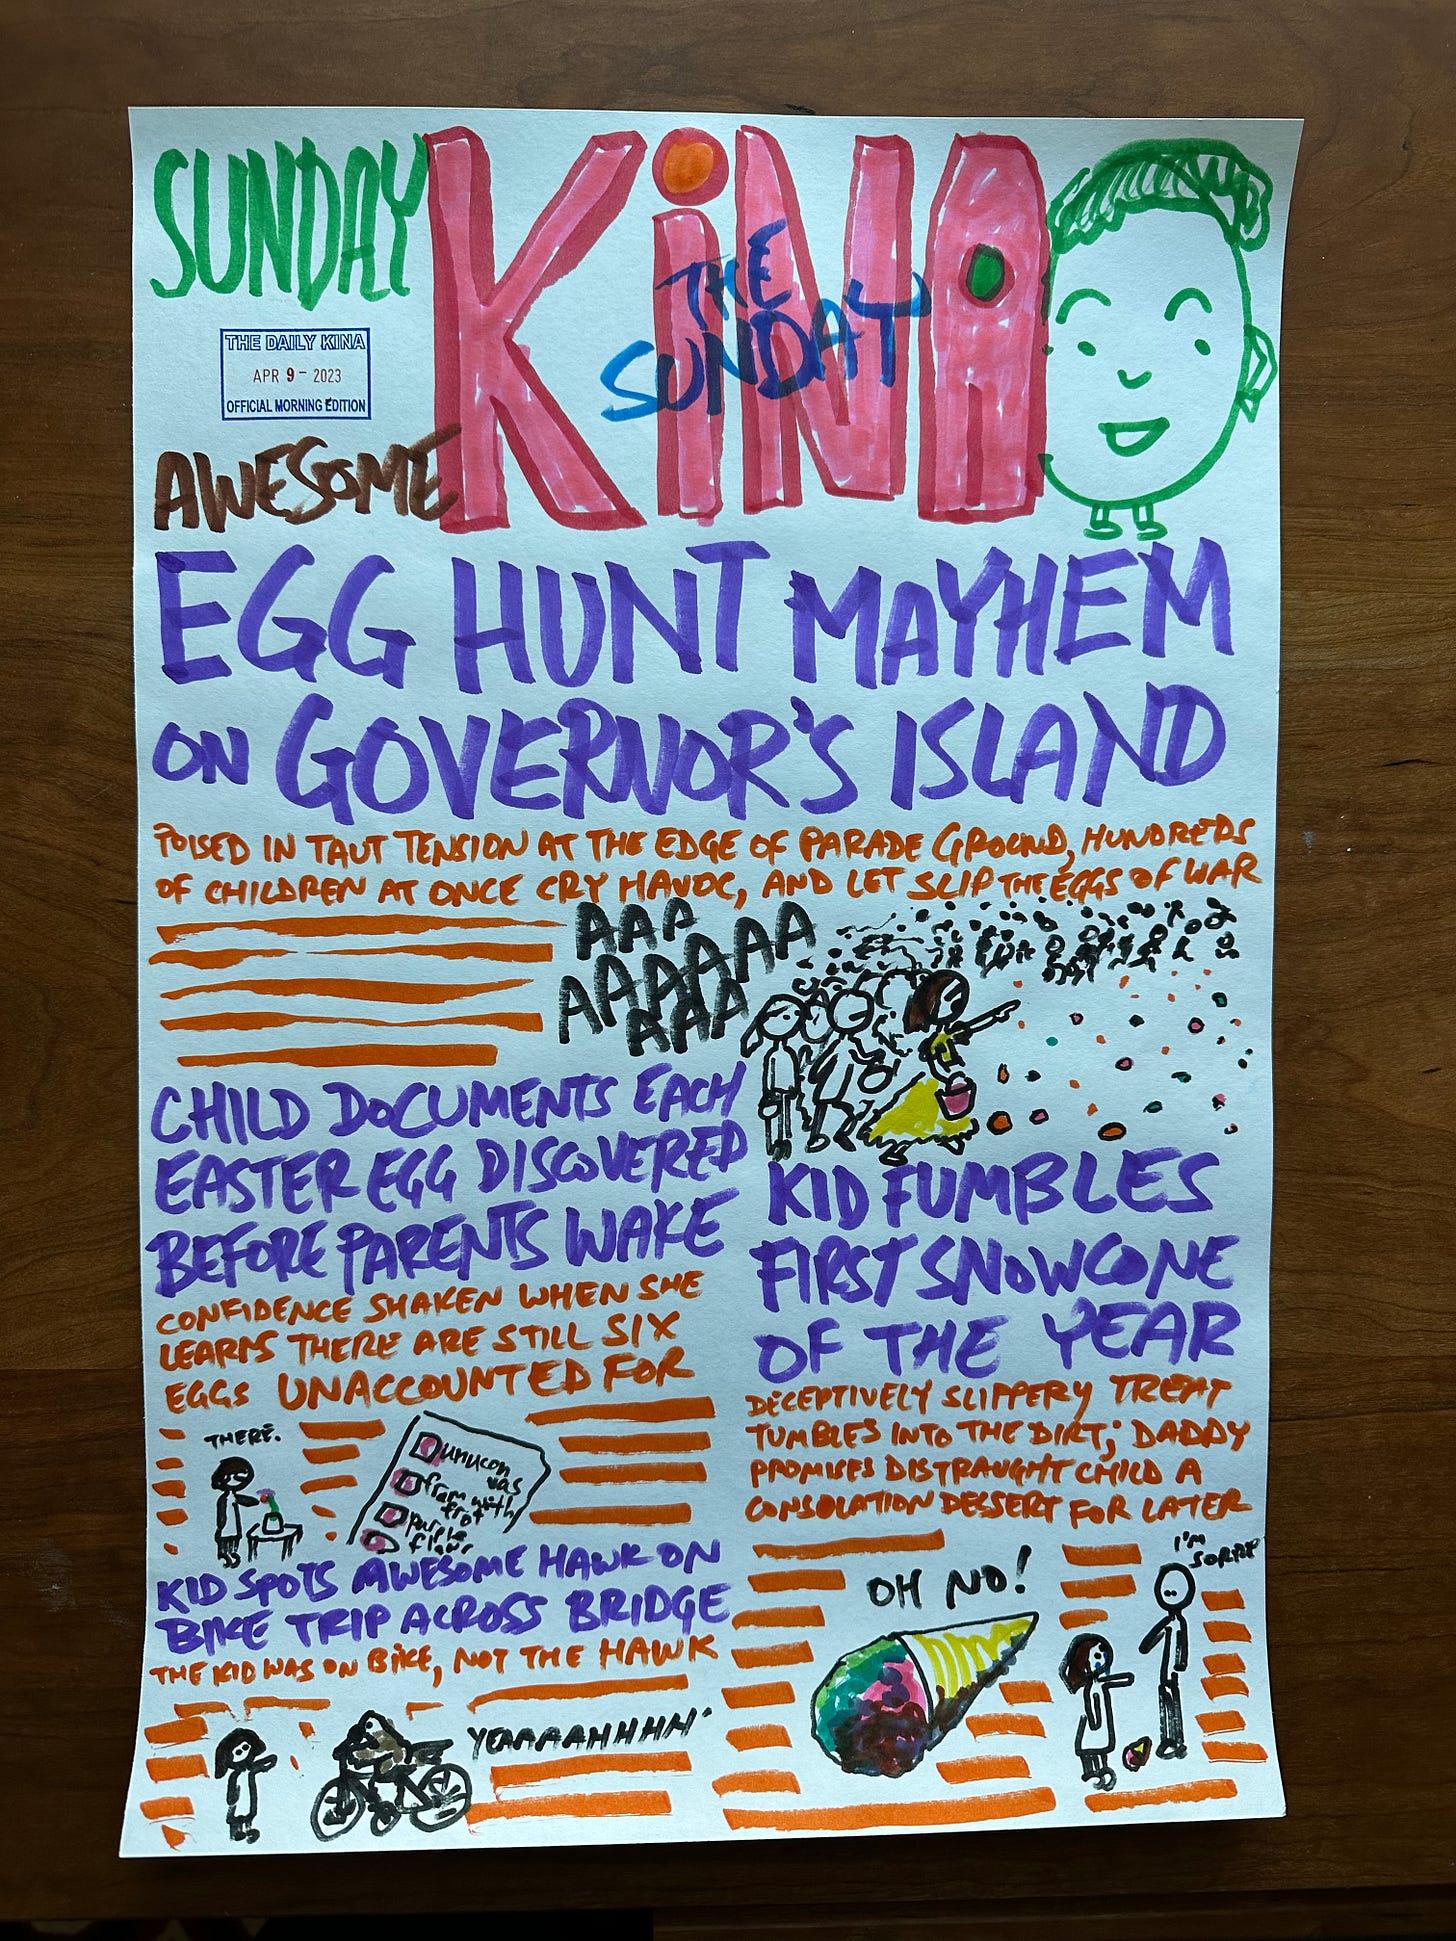 SUNDAY
KiNA
THE
SUNDAY
THE DAILY KINA
APR 9 - 2023
OFFICIAL MORNING EDITION
AWESOME
EGG HUNT MAYHEM
ON GOVERNOR'S ISLAND
POISED IN TAUT TENSION AT THE EDGE OF PARADE GROUND, HUNDREDS
OF CHILDREN AT ONCE CRY HAVOC, AND LET SLIP THE EGGS OF WAR
AAA
AAAAAA
AAA
CHILD DOCUMENTS EACH
EASTER EGG DISCOVERED
BEFORE PARENTS WAKE
CONFIDENCE SHAKEN WHEN SHE
LEARNS THERE ARE STILL SIX
EGGS UNACCOUNTED FOR
THERE.
unucon
was
fram with
frot
purple
flawr
KID SPOTS AWESOME HAWK ON
BIKE TRIP ACROSS BRIDGE
THE KID WAS ON BIKE, NOT THE HAWK
YEAAAAHHHH
KID FUMBLES
FIRST SNOWCONE
OF THE YEAR
DECEPTIVELY SLIPPERY TREAT
TUMBLES INTO THE DIRT; DADDY
PROMISES DISTRAUGHT CHILD A
CONSOLATION DESSERT FOR LATER
OH NO!
I'M
SORRY